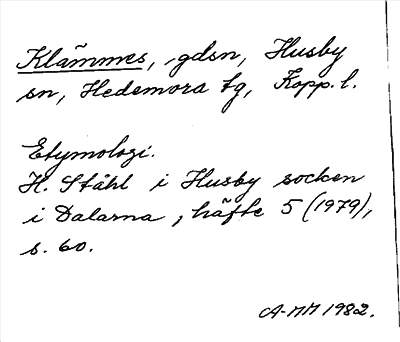 Klämmes, gdsn, Husby
sn, Hedemora tg, Kopp. l.
Etymologi.
H. Ståhl i Husby socken
i Dalarna, häfte 5 (1979),
s. 60.
A-MM 1982.